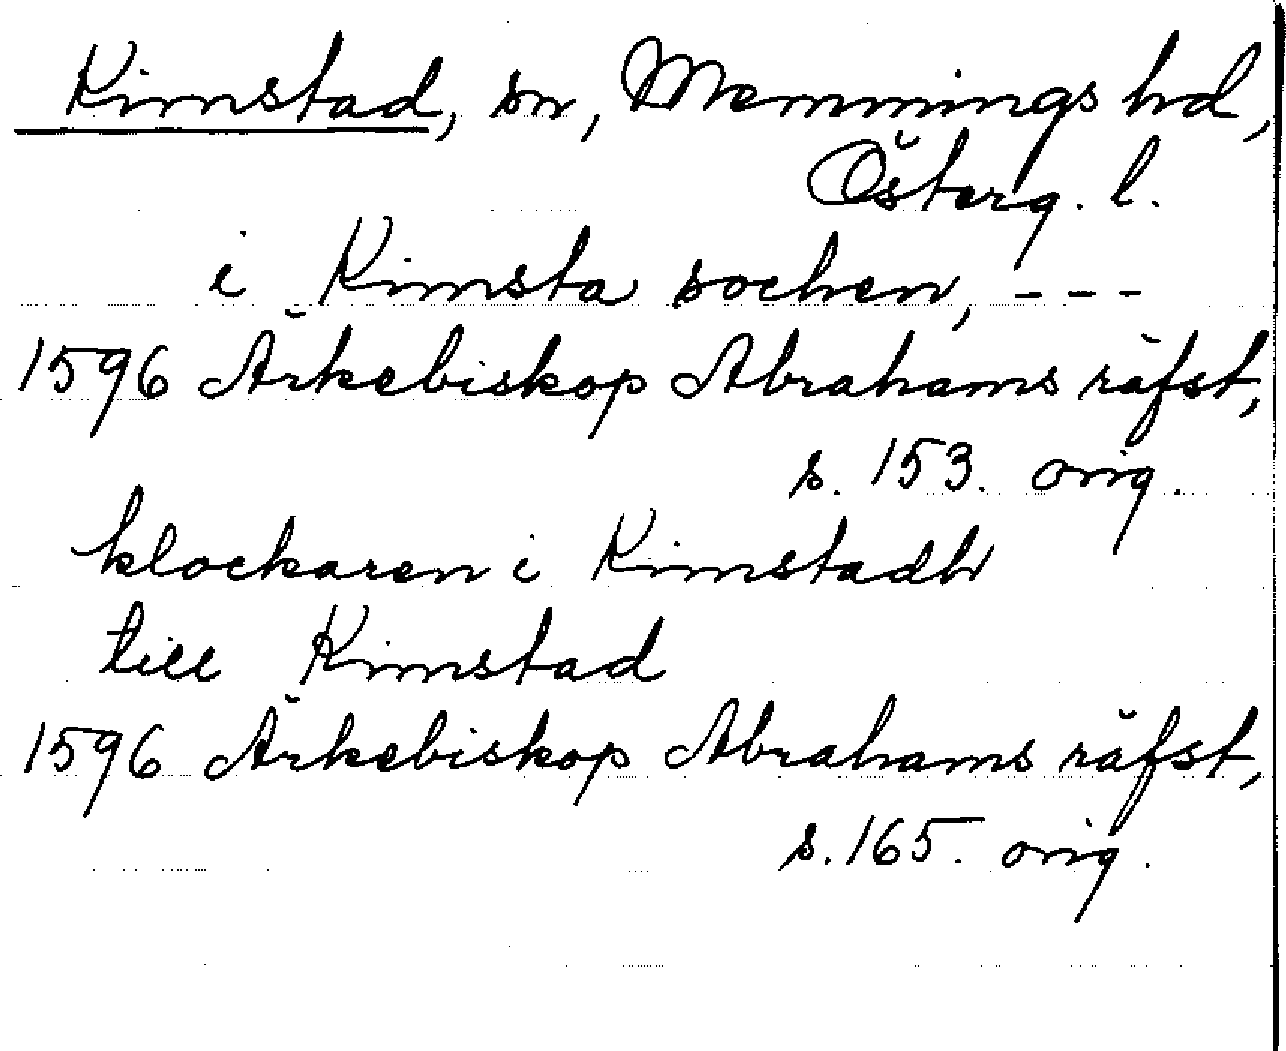 Kimstad, sn, Memmings hd,
Österg. l.
i Kimsta sochen, ---
1596 Ärkebiskop Abrahams räfst,
s. 153. orig.
klockaren i Kimstadh
till Kimstad
1596 Ärkebiskop Abrahams räfst,
s. 165. orig.